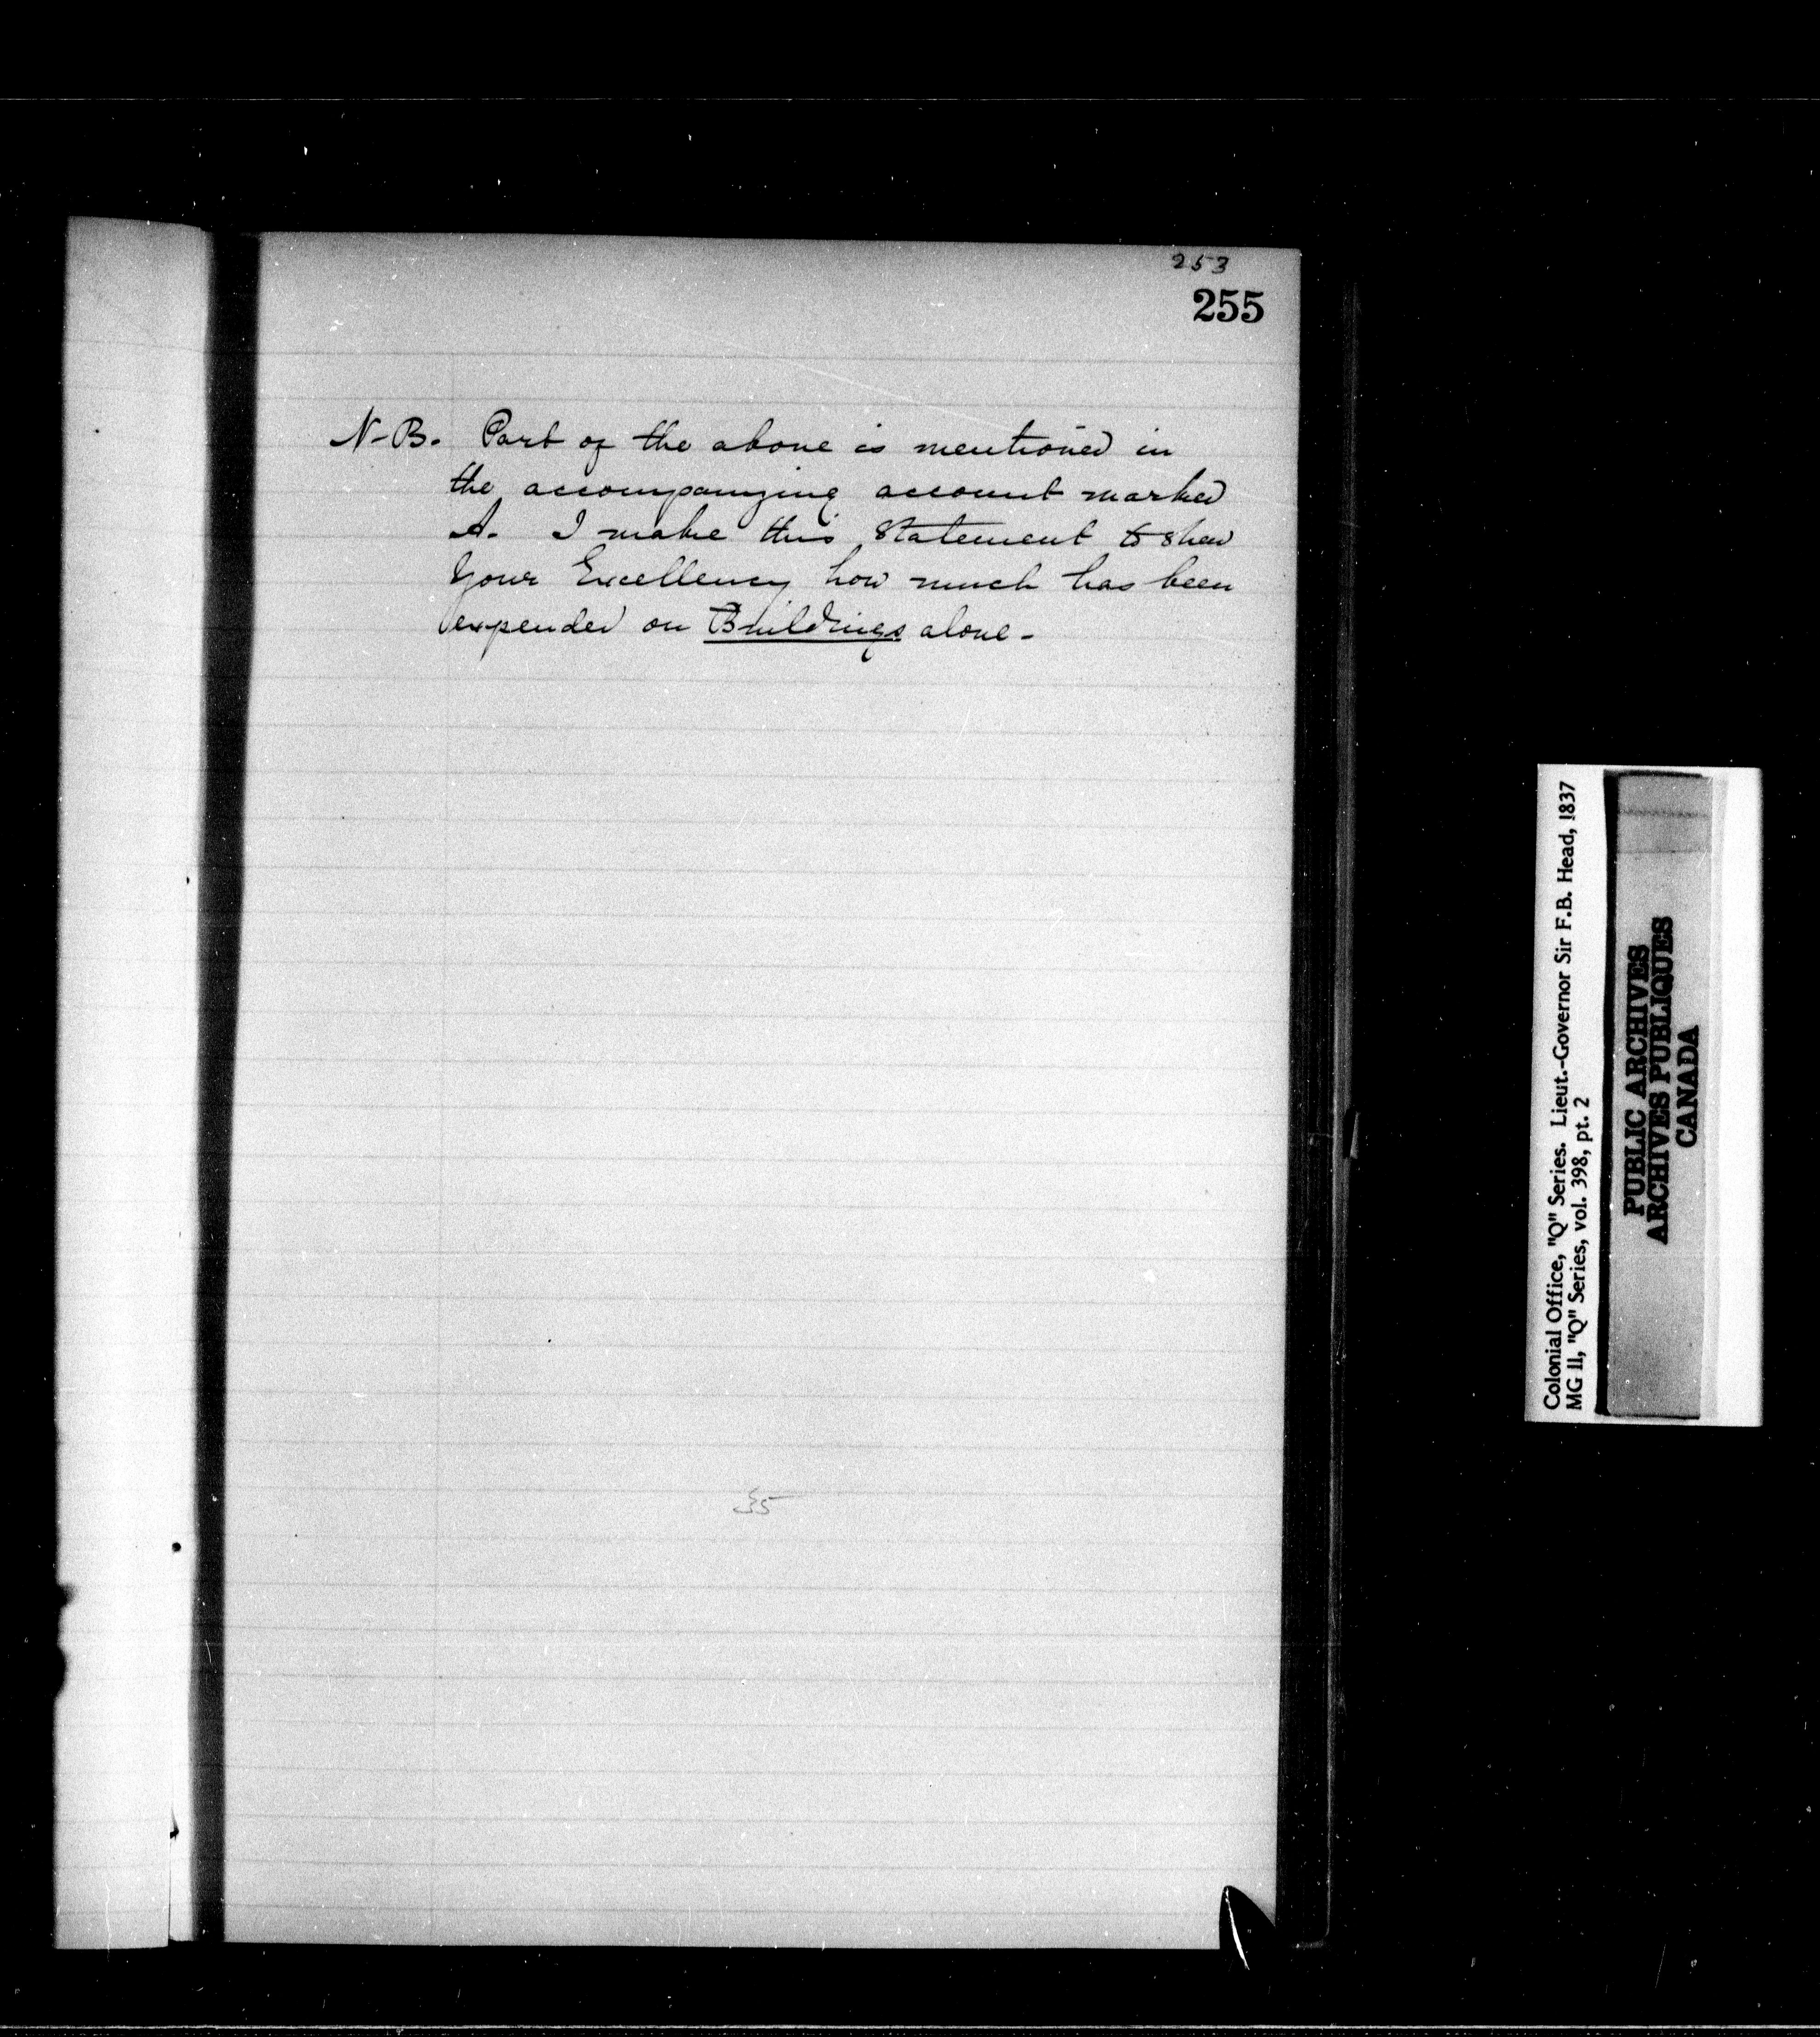 253
255
N-B. Part of the above is mentioned in
the accompanying account marked
A. I make this Statement to shew
Your Excellency how much has been
expended on Buildings alone-
35
Colonial Office, "Q" Series. Lieut.-Governor Sir F.B. Head, 1837
MG 11, "Q" Series, vol. 398, pt. 2
PUBLIC ARCHIVES
ARCHIVES PUBLIQUES
CANADA